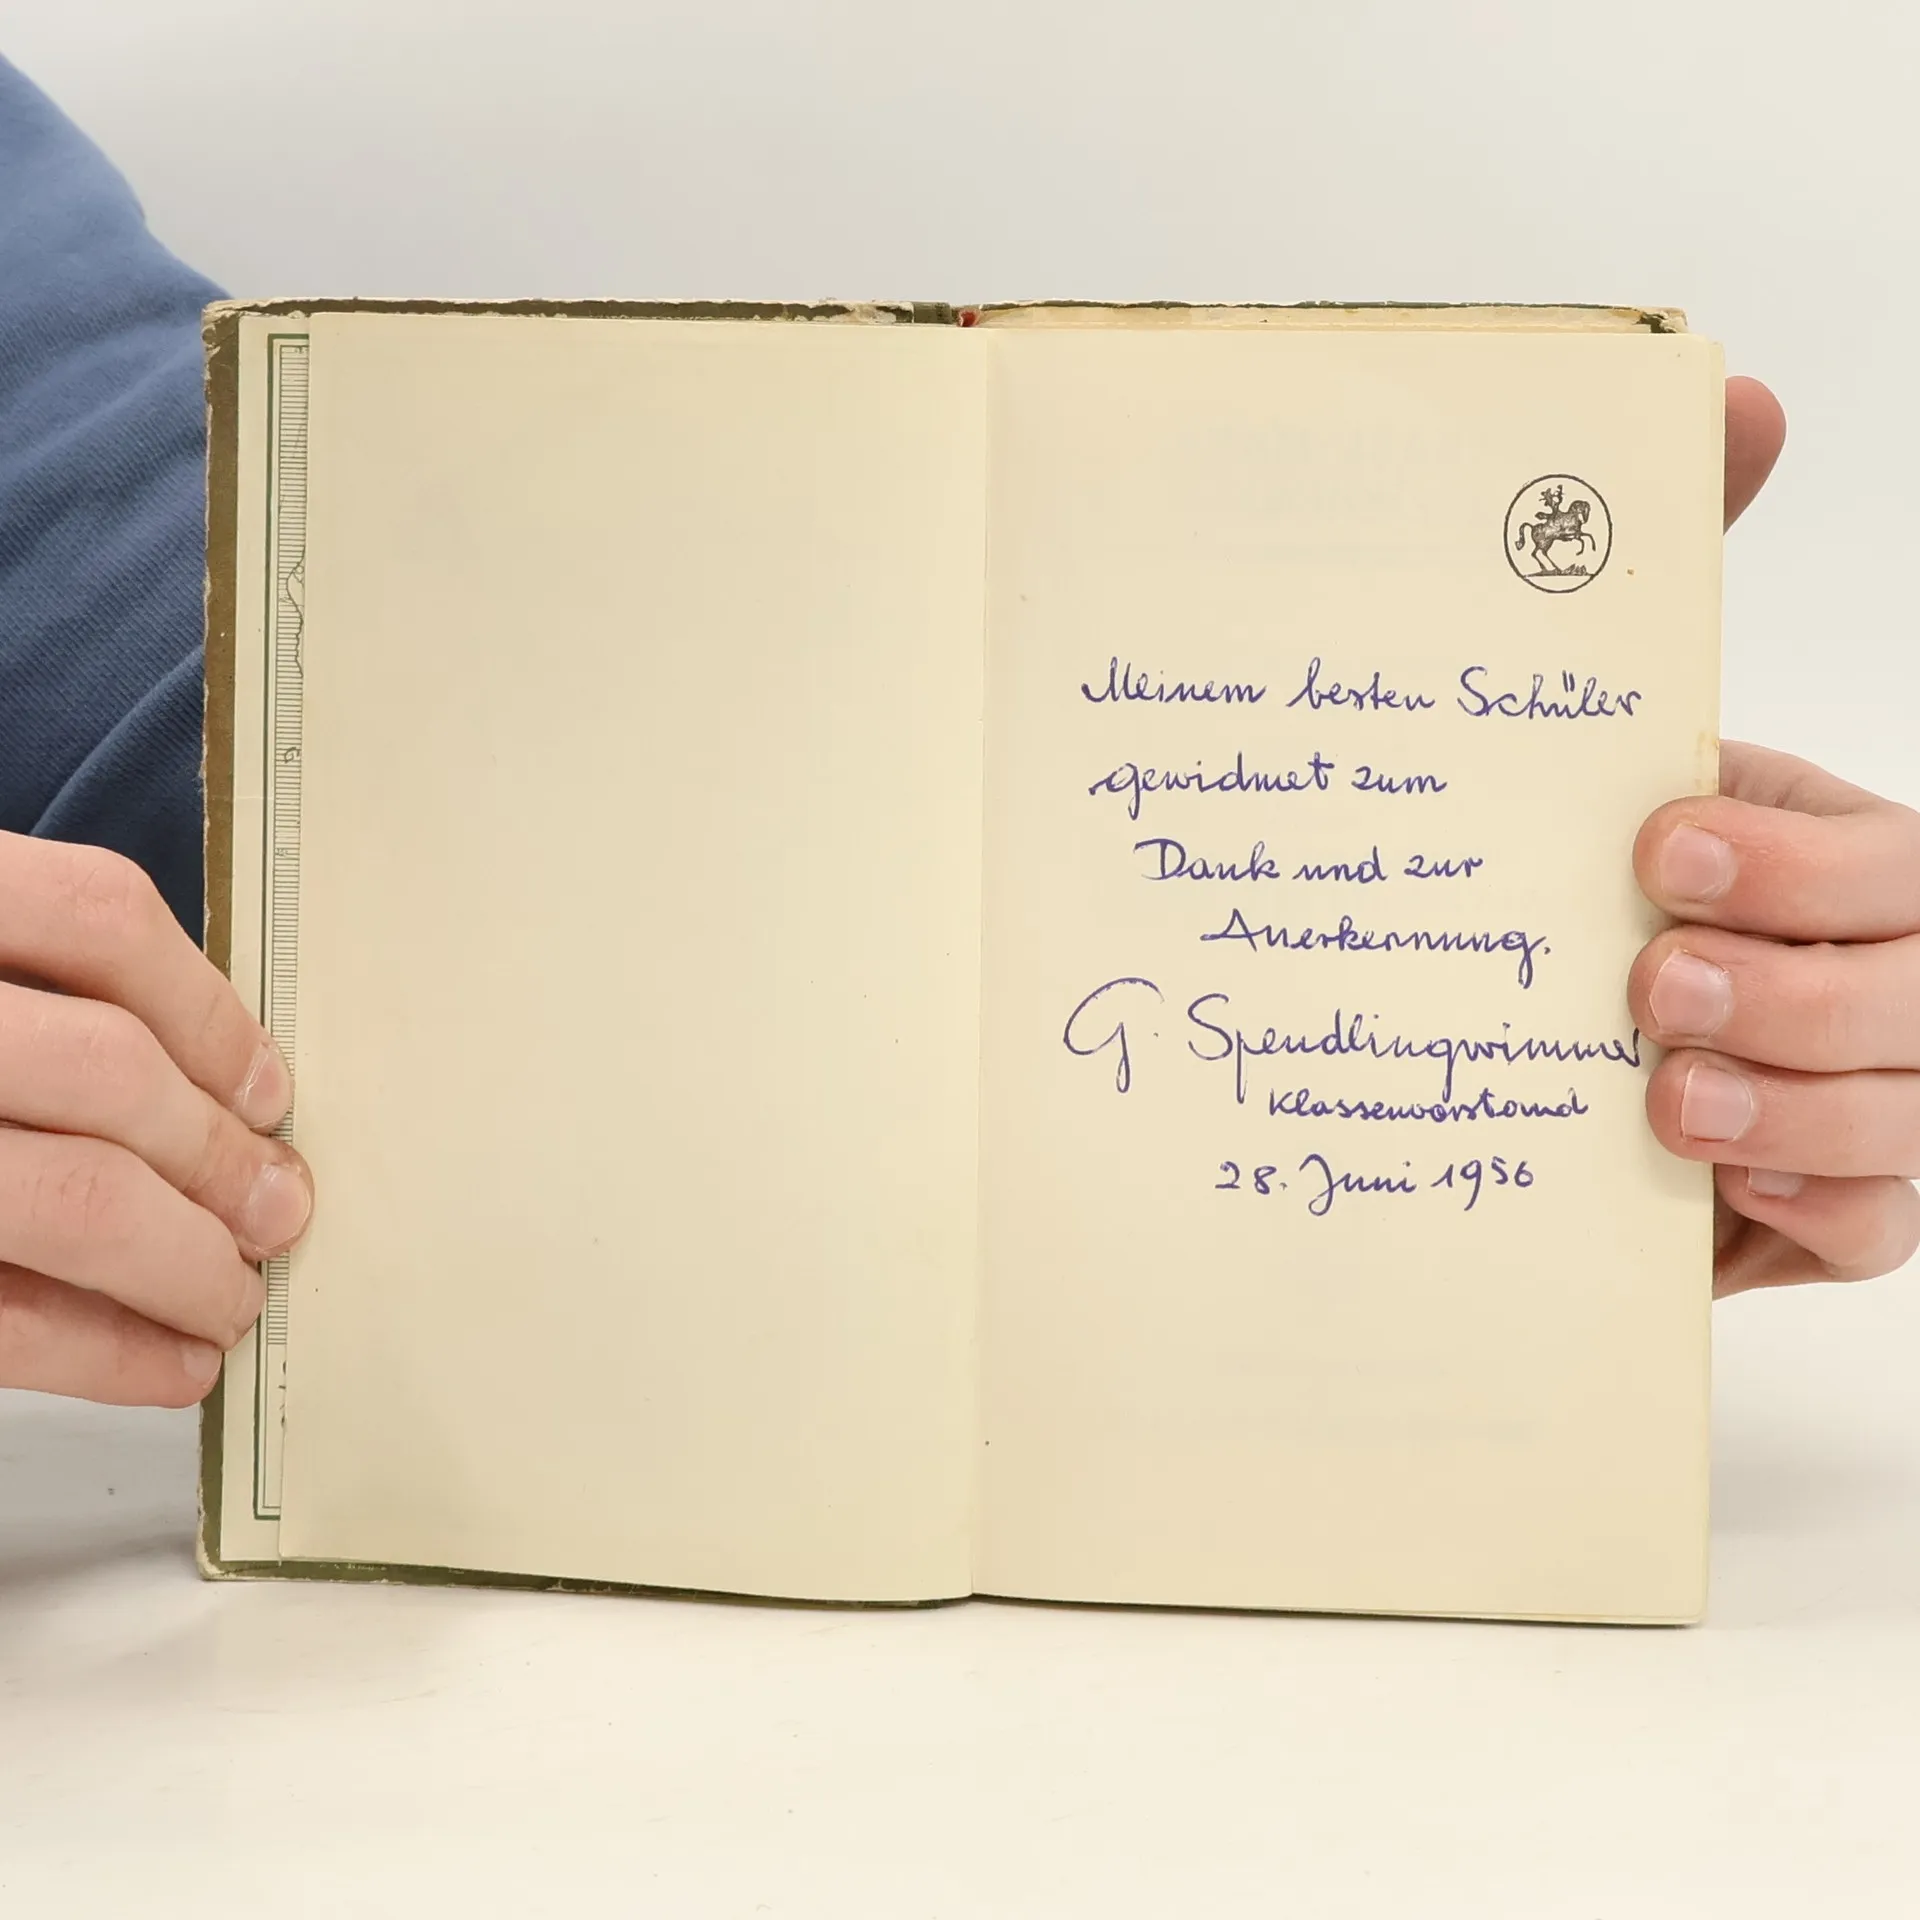 Meinem besten Schüler
gewidmet zum
Dank und zur
Anerkennung.
G. Spendlingwimmer
Klassenvorstand
28. Juni 1956